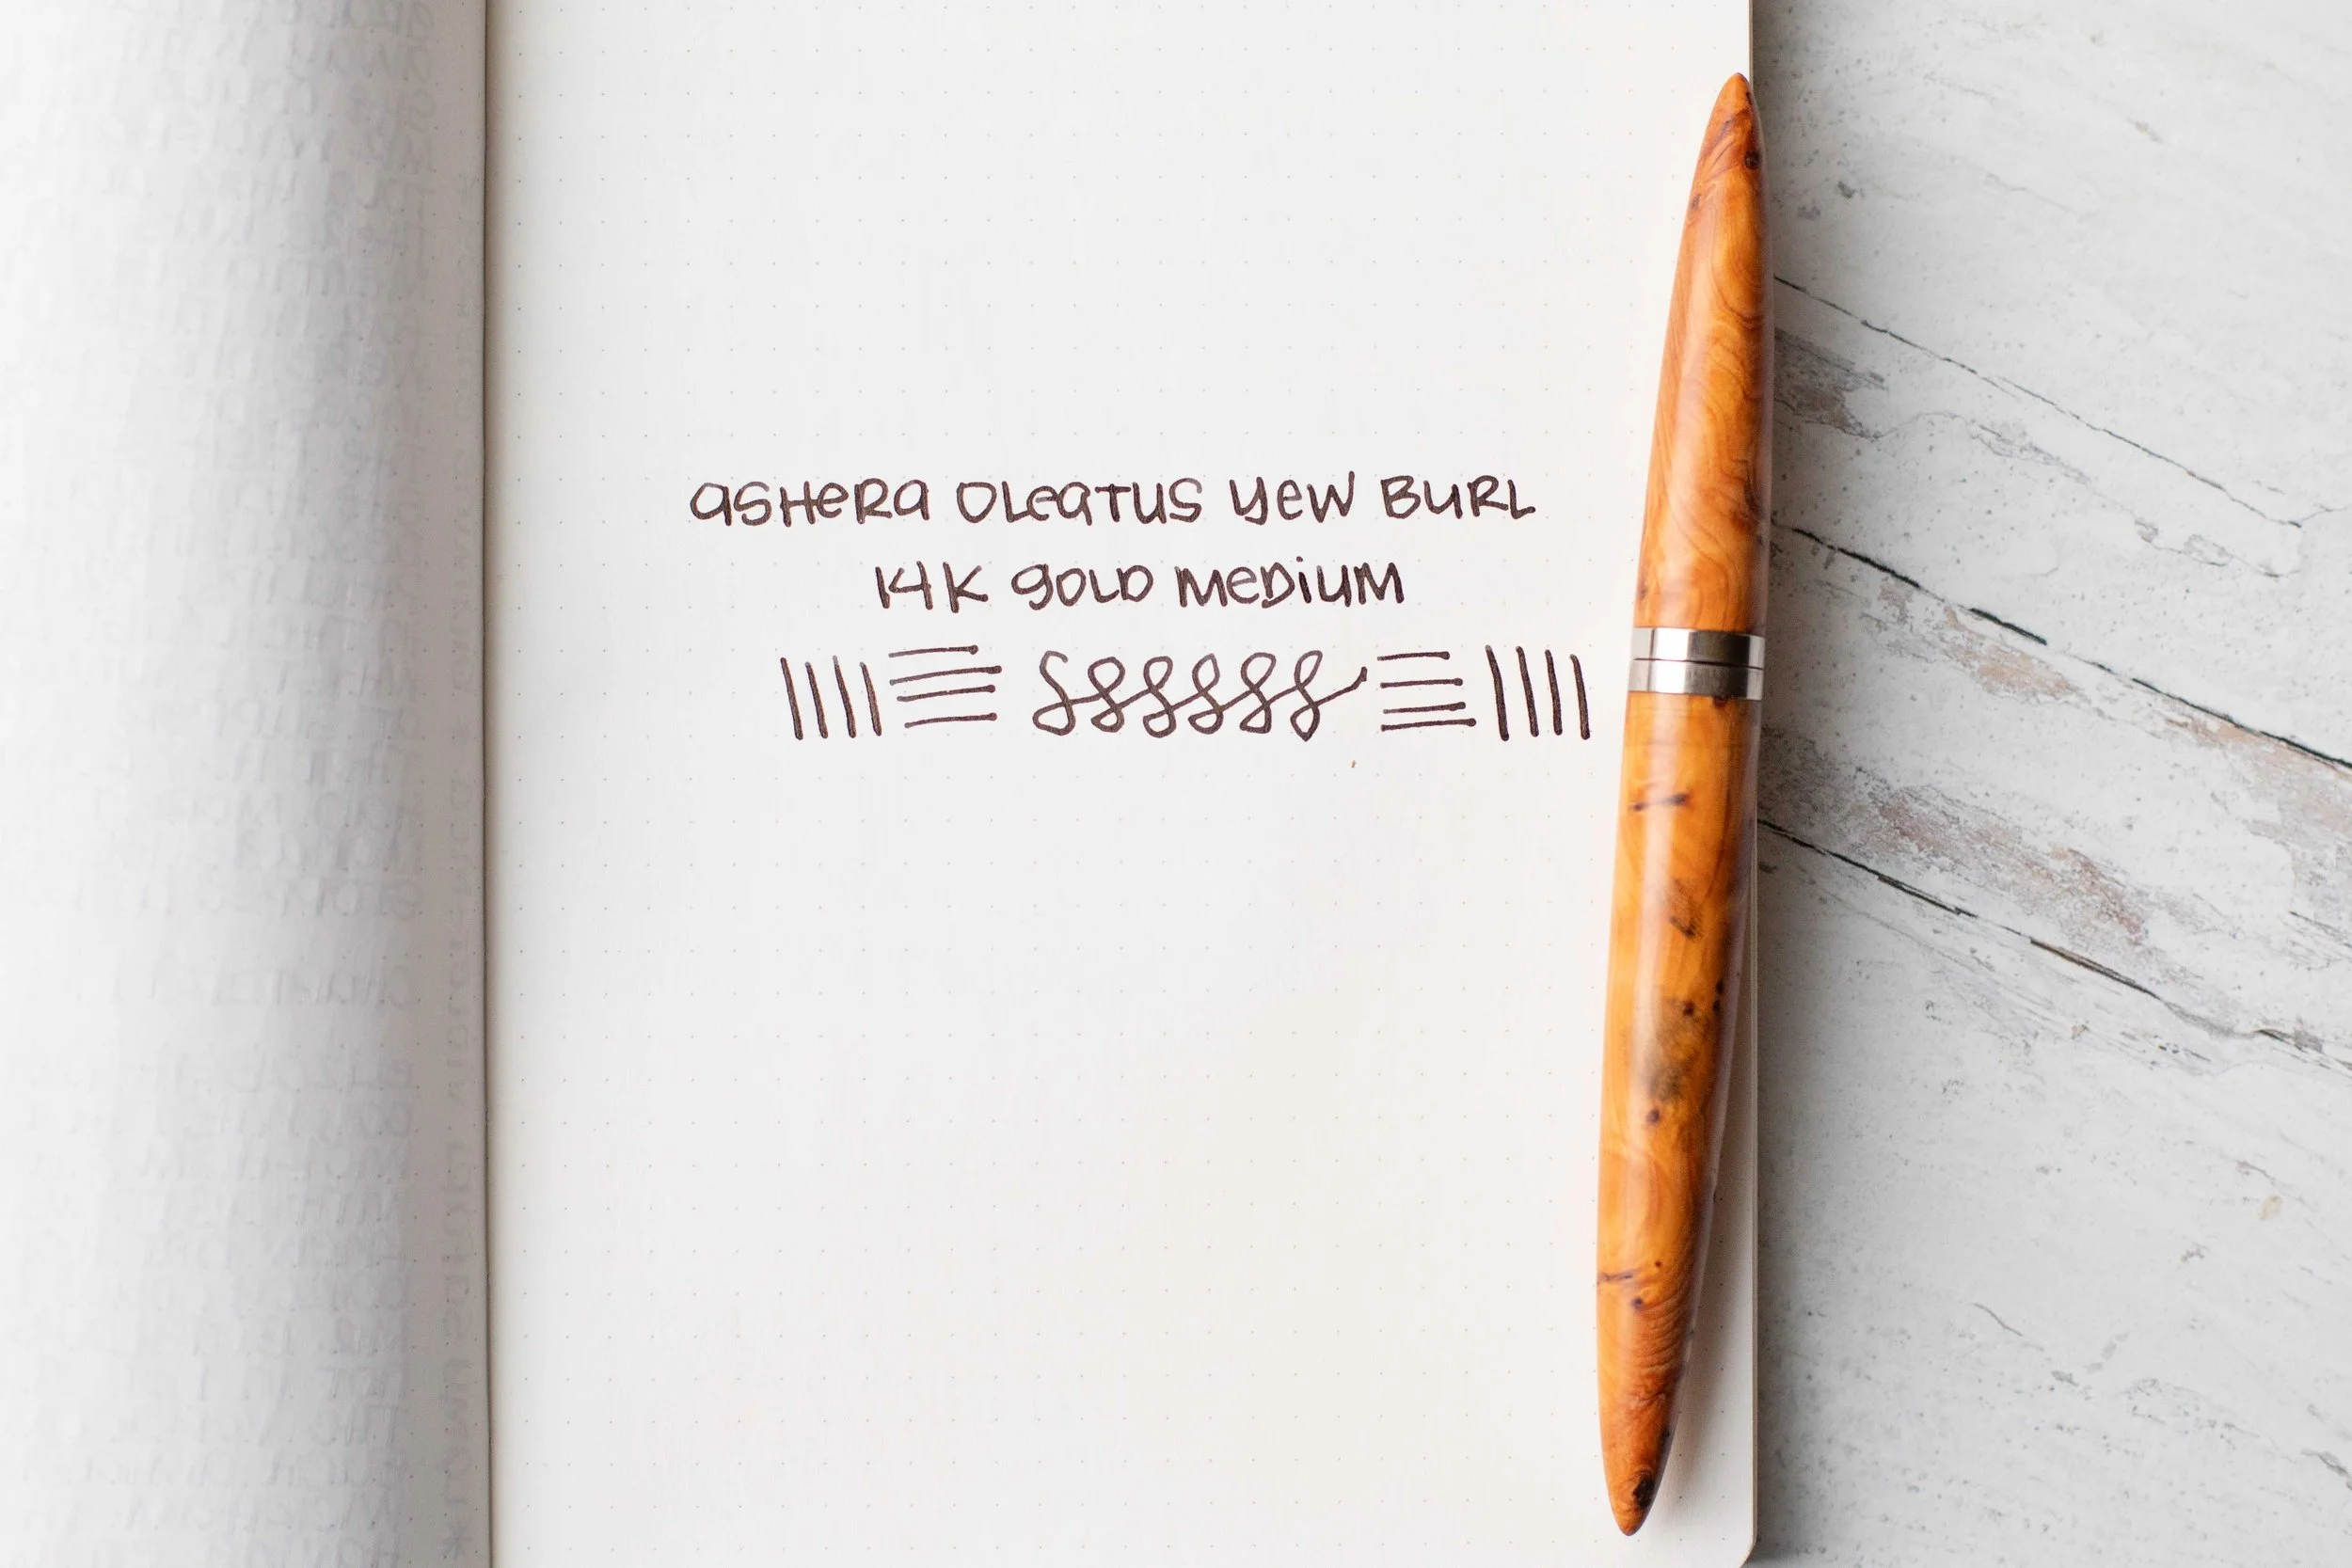 ASHERA OLEATUS YEW BURL
14K GOLD MEDIUM